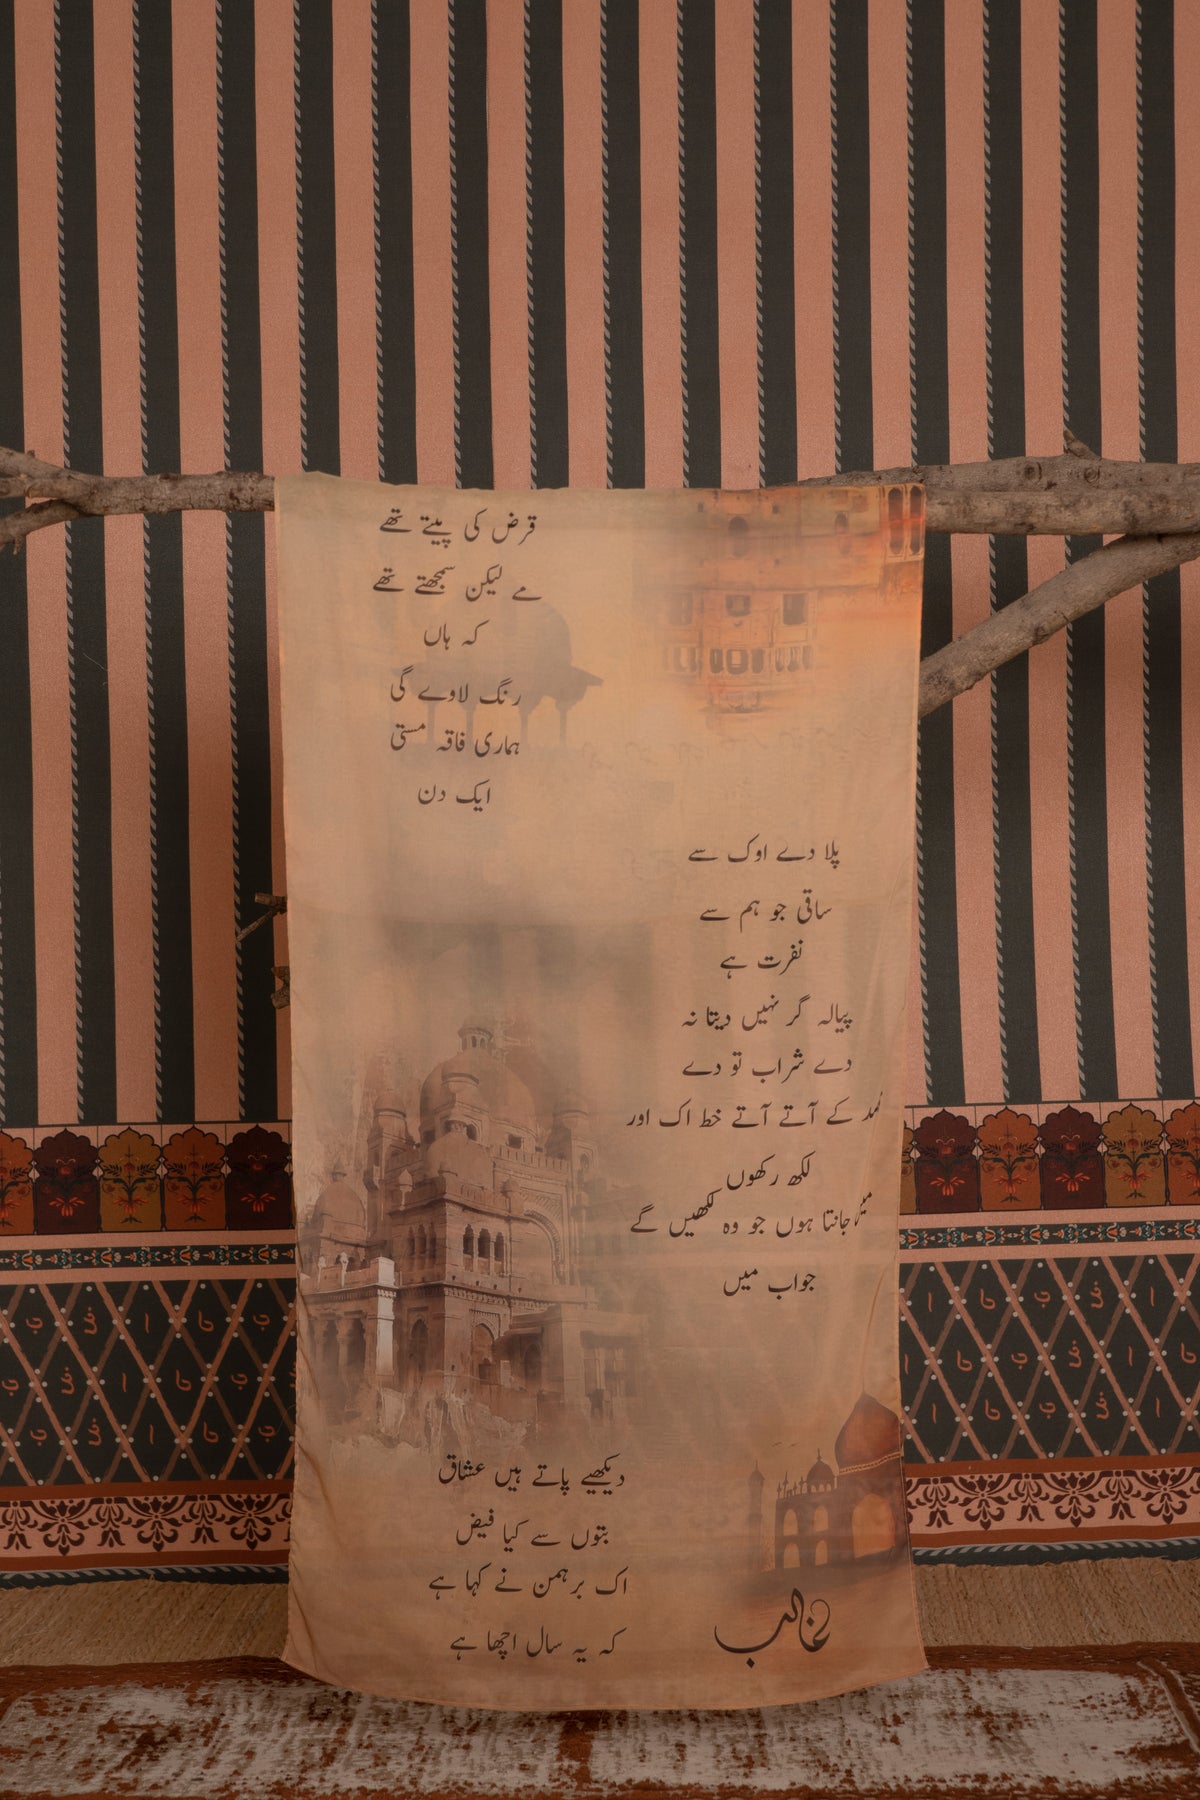 قرض کی پیتے تھے
مے لیکن سمجھتے تھے
کہ ہاں
رنگ لاوے گی
ہماری فاقہ مستی
ایک دن
پلا دے اوک سے
ساقی جو ہم سے
نفرت ہے
پیالہ گر نہیں دیتا نہ
دے شراب تو دے
کے آتے آتے خط اک اور
لکھ رکھوں
میں جانتا ہوں جو وہ لکھیں گے
جواب میں
دیکھیے پاتے ہیں عشاق
بتوں سے کیا فیض
اک برہمن نے کہا ہے
کہ یہ سال اچھا ہے
غالب